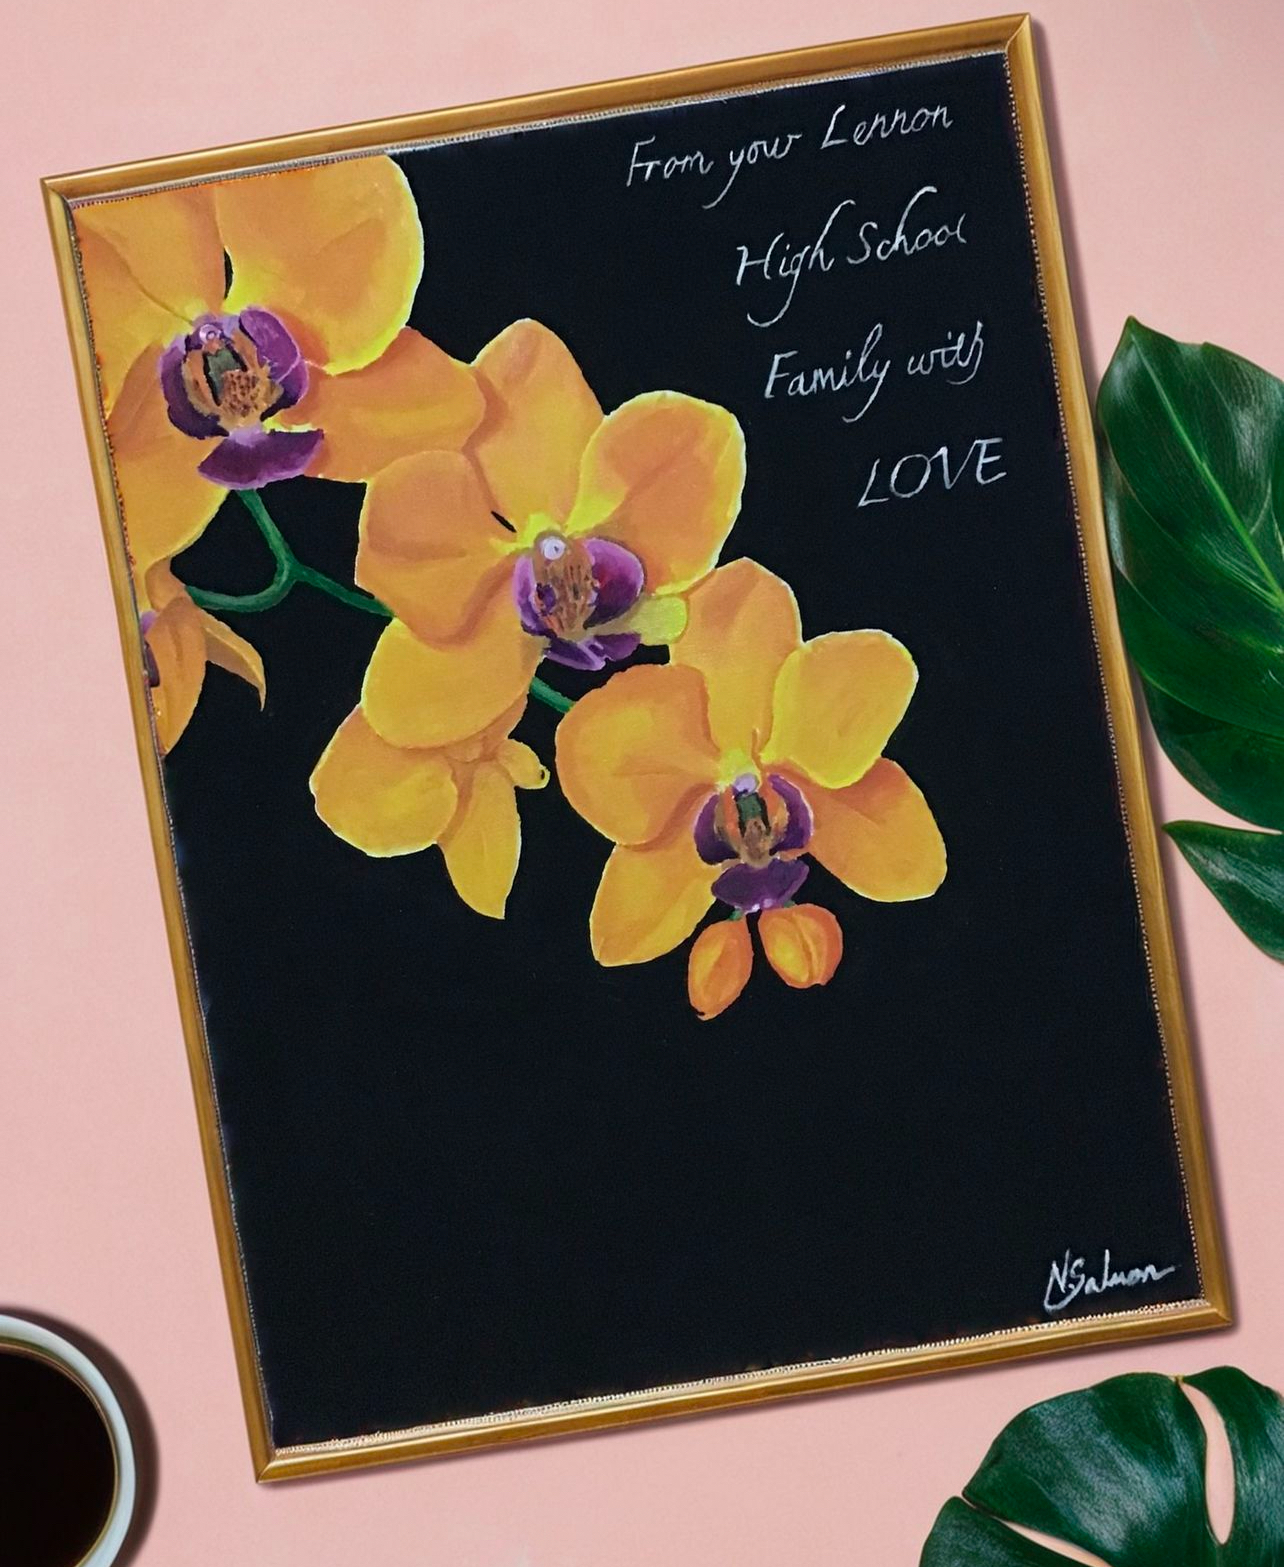 From your Lennon
High School
Family with
LOVE
N.Salmon